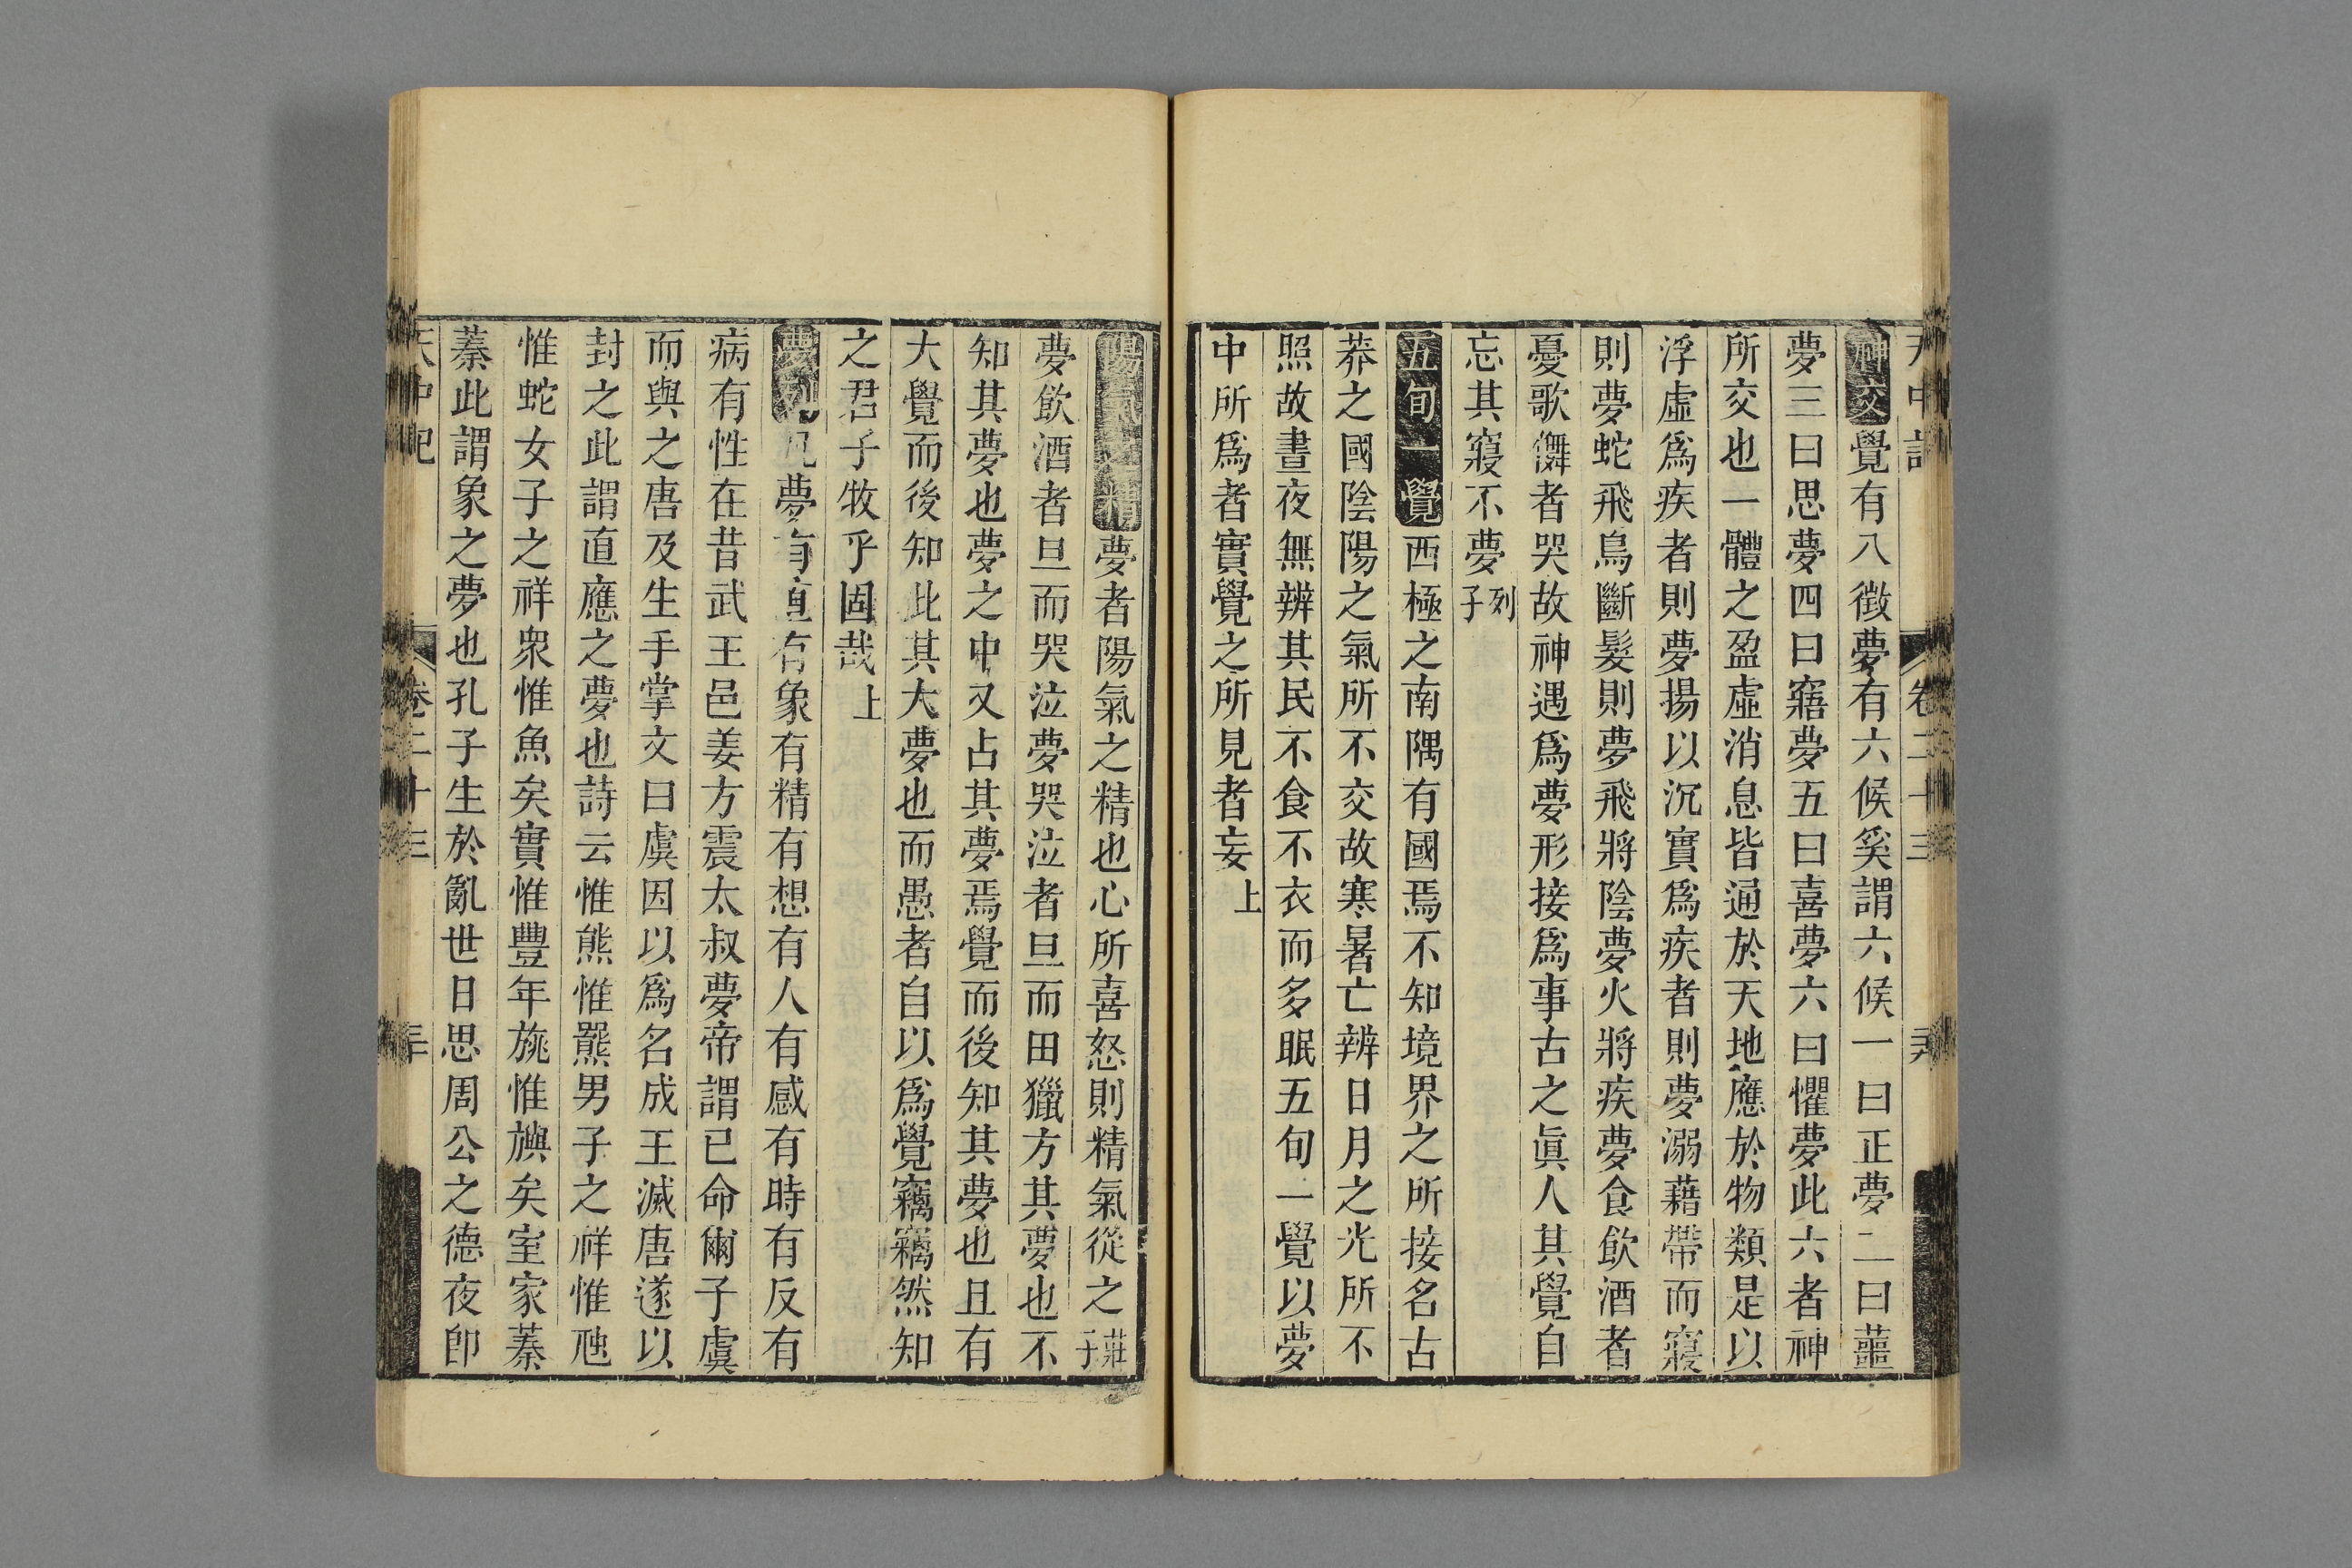 天中記 卷二十三
神交覺有八徵夢有六候奚謂六候一曰正夢二曰蘁
夢三曰思夢四曰寤夢五曰喜夢六曰懼夢此六者神
所交也一體之盈虛消息皆通於天地應於物類是以
浮虛爲疾者則夢揚以沉實爲疾者則夢溺藉帶而寢
則夢蛇飛鳥斷髮則夢飛將陰夢火將疾夢食飲酒者
憂歌儛者哭故神遇爲夢形接爲事古之眞人其覺自
忘其寢不夢列子
五旬一覺西極之南隅有國焉不知境界之所接名古
莽之國陰陽之氣所不交故寒暑亡辨日月之光所不
照故晝夜無辨其民不食不衣而多眠五旬一覺以夢
中所爲者實覺之所見者妄上
陽氣之精夢者陽氣之精也心所喜怒則精氣從之莊子
夢飲酒者旦而哭泣夢哭泣者旦而田獵方其夢也不
知其夢也夢之中又占其夢焉覺而後知其夢也且有
大覺而後知此其大夢也而愚者自以爲覺竊竊然知
之君子牧乎固哉上
夢列凡夢有直有象有精有想有人有感有時有反有
病有性在昔武王邑姜方震太叔夢帝謂已命爾子虞
而與之唐及生手掌文曰虞因以爲名成王滅唐遂以
封之此謂直應之夢也詩云惟熊惟羆男子之祥惟虺
惟蛇女子之祥衆惟魚矣實惟豐年旐惟旟矣室家蓁
蓁此謂象之夢也孔子生於亂世日思周公之德夜卽
天中記 卷二十三 三十